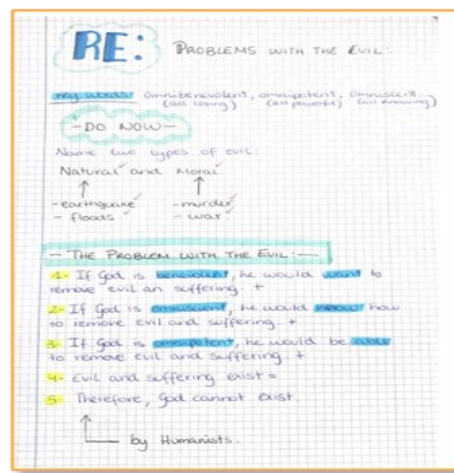 RE: PROBLEMS WITH THE EVIL:
key words: Omnibenevolent, omnipotent, Omniscient.
(all loving) (all powerful) (all knowing)
-DO NOW-
Name two types of evil:
Natural and Moral
-earthquake -murder
- floods - war
- THE PROBLEM WITH THE EVIL: -
1- If God is benevolent, he would want to
remove evil an suffering +
2- If God is omniscient, he would know how
to remove evil and suffering +
3- If God is omnipotent, he would be able
to remove evil and suffering +
4- Evil and suffering exist =
5- Therefore, God cannot exist.
by Humanists.